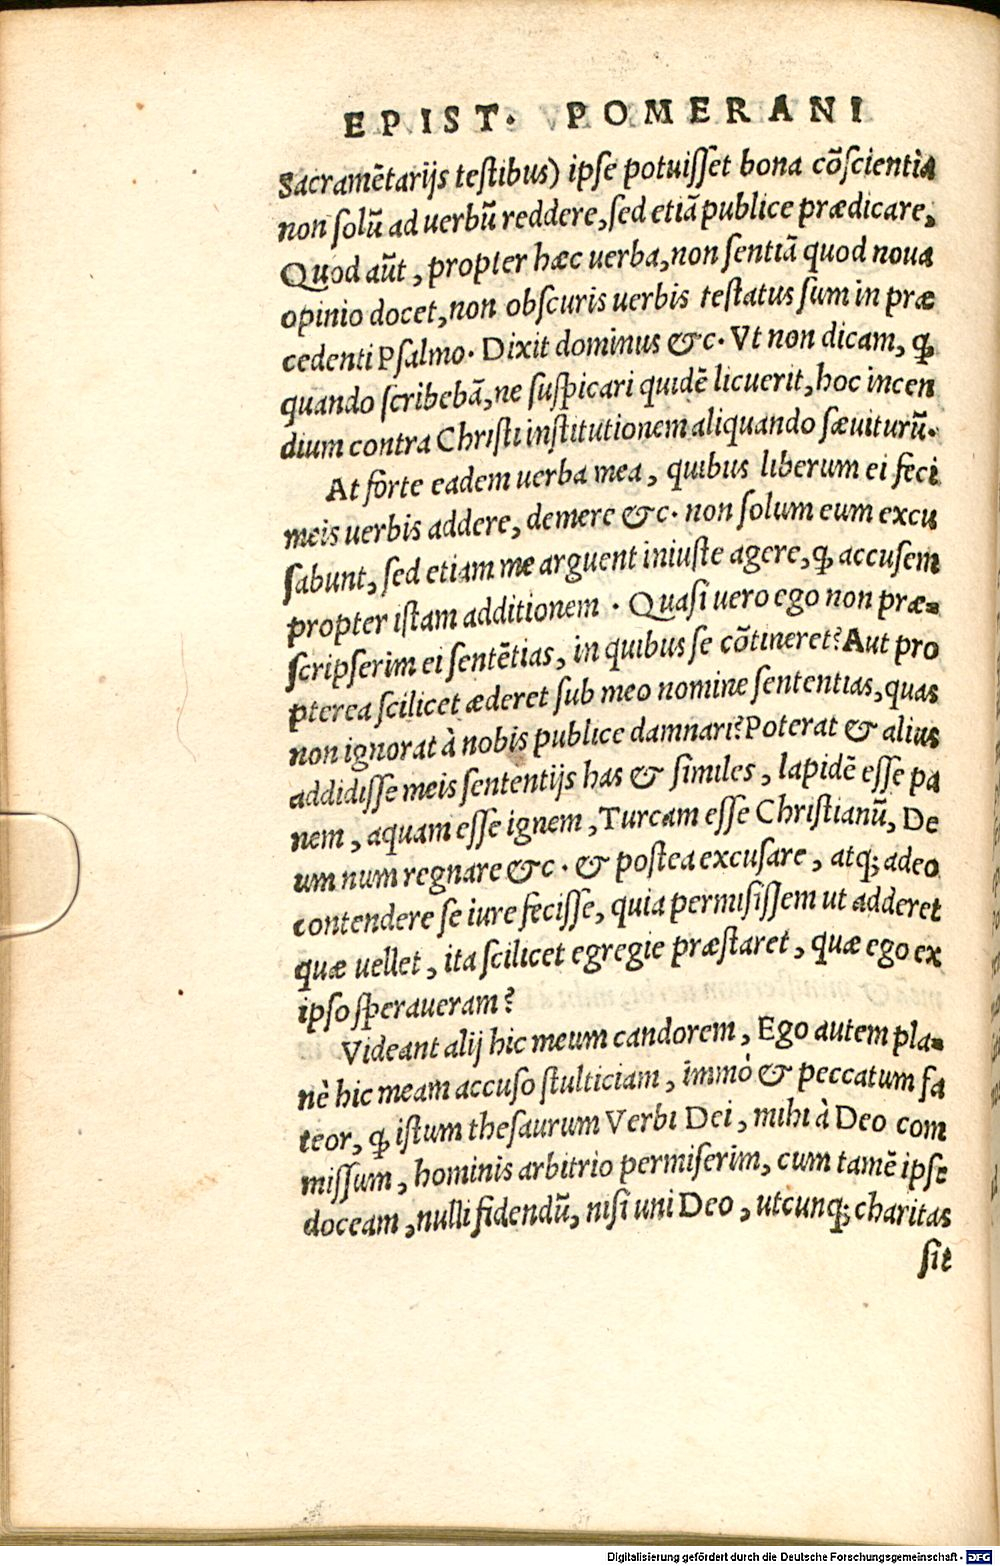 EPIST. POMERANI
Sacramẽtarijs testibus) ipse potuisset bona cõscientia
non solũ ad uerbũ reddere, sed etiã publice prædicare,
Quod aũt, propter hæc uerba, non sentiã quod noua
opinio docet, non obscuris uerbis testatus sum in præ
cedenti Psalmo. Dixit dominus &c. Vt non dicam, ꝙ
quando scribebã, ne suspicari quidẽ licuerit, hoc incen
dium contra Christi institutionem aliquando sæuiturũ.
At forte eadem uerba mea, quibus liberum ei feci
meis uerbis addere, demere &c. non solum eum excu
sabunt, sed etiam me arguent iniuste agere, ꝙ accusem
propter istam additionem. Quasi uero ego non præ=
scripserim ei sentẽtias, in quibus se cõtineret? Aut pro
pterea scilicet æderet sub meo nomine sententias, quas
non ignorat à nobis publice damnari? Poterat & alius
addidisse meis sententijs has & similes, lapidẽ esse pa
nem, aquam esse ignem, Turcam esse Christianũ, De
um num regnare &c. & postea excusare, atq; adeo
contendere se iure fecisse, quia permisissem ut adderet
quæ uellet, ita scilicet egregie præstaret, quæ ego ex
ipso speraueram?
Videant alij hic meum candorem, Ego autem pla=
nè hic meam accuso stulticiam, immò & peccatum fa
teor, ꝙ istum thesaurum Verbi Dei, mihi à Deo com
missum, hominis arbitrio permiserim, cum tamẽ ipse
doceam, nulli fidendũ, nisi uni Deo, utcunq; charitas
sit
Digitalisierung gefördert durch die Deutsche Forschungsgemeinschaft - DFG